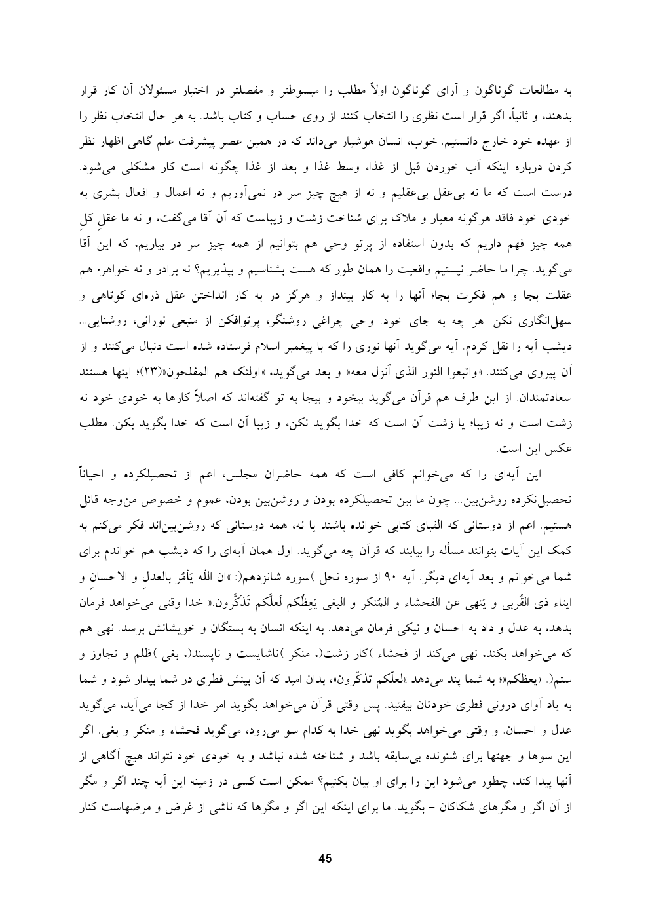 به مطالعات گوناگون و آرای گوناگون اولاً مطلب را مبسوطتر و مفصلتر در اختیار مسئولان آن کار قرار
بدهند، و ثانیاً، اگر قرار است نظری را انتخاب کنند از روی حساب و کتاب باشد. به هر حال انتخاب نظر را
از عهده خود خارج دانستیم. خوب، انسان هوشیار می‌داند که در همین عصر پیشرفت علم گاهی اظهار نظر
کردن درباره اینکه آب خوردن قبل از غذا، وسط غذا و بعد از غذا چگونه است کار مشکلی می‌شود.
درست است که ما نه بی‌عقل بی‌عقلیم و نه از هیچ چیز سر در نمی‌آوریم و نه اعمال و افعال بشری به
خودی خود فاقد هرگونه معیار و ملاک برای شناخت زشت و زیباست که آن آقا می‌گفت، و نه ما عقل کل
همه چیز فهم داریم که بدون استفاده از پرتو وحی هم بتوانیم از همه چیز سر در بیاریم، که این آقا
می‌گوید. چرا ما حاضر نیستیم واقعیت را همان طور که هست بشناسیم و بپذیریم؟ نه برادر و نه خواهر، هم
عقلت بجا و هم فکرت بجا؛ آنها را به کار بینداز و هرگز در به کار انداختن عقل ذره‌ای کوتاهی و
سهل‌انگاری نکن. هر چه به جای خود. وحی چراغی روشنگر، پرتوافکن از منبعی نورانی، روشنایی...
دیشب آیه را نقل کردم. آیه می‌گوید آنها نوری را که با پیغمبر اسلام فرستاده شده است دنبال می‌کنند و از
آن پیروی می‌کنند. «و اتبعوا النور الذی أنزل معه« و بعد می‌گوید، »اولئک هم المفلحون«(٢٣)؛ اینها هستند
سعادتمندان. از این طرف هم قرآن می‌گوید بیخود و بیجا به تو گفته‌اند که اصلاً کارها به خودی خود نه
زشت است و نه زیبا؛ یا زشت آن است که خدا بگوید نکن، و زیبا آن است که خدا بگوید بکن. مطلب
عکس این است.
این آیه‌ای را که می‌خوانم کافی است که همه حاضران مجلس، اعم از تحصیلکرده و احیاناً
تحصیل‌نکرده روشن‌بین... چون ما بین تحصیلکرده بودن و روشن‌بین بودن، عموم و خصوص من‌وجه قائل
هستیم. اعم از دوستانی که الفبای کتابی خوانده باشند یا نه، همه دوستانی که روشن‌بین‌اند فکر می‌کنم به
کمک این آیات بتوانند مسأله را بیابند که قرآن چه می‌گوید. اول همان آیه‌ای را که دیشب هم خواندم برای
شما می‌خوانم و بعد آیه‌ای دیگر. آیه ٩٠ از سوره نحل )سوره شانزدهم(: »ان اللّه یَأمُر بالعدل و الاحسان و
ایتاء ذی القُربی و یَنهی عن الفحشاء و المُنکر و البغی یَعِظُکم لَعلّکم تَذَکَّرون.« خدا وقتی می‌خواهد فرمان
بدهد، به عدل و داد به احسان و نیکی فرمان می‌دهد. به اینکه انسان به بستگان و خویشانش برسد. نهی هم
که می‌خواهد بکند، نهی می‌کند از فحشاء )کار زشت(، منکر )ناشایست و ناپسند(، بغی )ظلم و تجاوز و
ستم(. (یعظکم«؛ به شما پند می‌دهد «لعلّکم تذکّرون»، بدان امید که آن بینش فطری در شما بیدار شود و شما
به یاد آوای درونی فطری خودتان بیفتید. پس وقتی قرآن می‌خواهد بگوید امر خدا از کجا می‌آید، می‌گوید
عدل و احسان. و وقتی می‌خواهد بگوید نهی خدا به کدام سو می‌رود، می‌گوید فحشاء و منکر و بغی. اگر
این سوها و جهتها برای شنونده بی‌سابقه باشد و شناخته شده نباشد و به خودی خود نتواند هیچ آگاهی از
آنها پیدا کند، چطور می‌شود این را برای او بیان بکنیم؟ ممکن است کسی در زمینه این آیه چند اگر و مگر
از آن اگر و مگرهای شکاکان – بگوید. ما برای اینکه این اگر و مگرها که ناشی از غرض و مرضهاست کنار
45